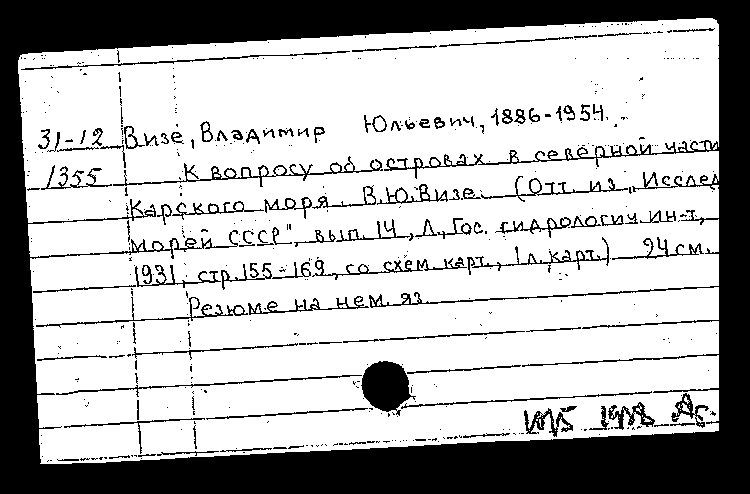 31-12 Визе, Владимир Юльевич, 1886-1954.
1355 К вопросу об островах в северной части
Карского моря. В.Ю.Визе. (Отт. из „Исслед.
морей СССР", вып. 14, Л., Гос. гидрологич. ин-т,
1931, стр. 155-169, со схем. карт., 1 л. карт.) 24 см.
Резюме на нем. яз.